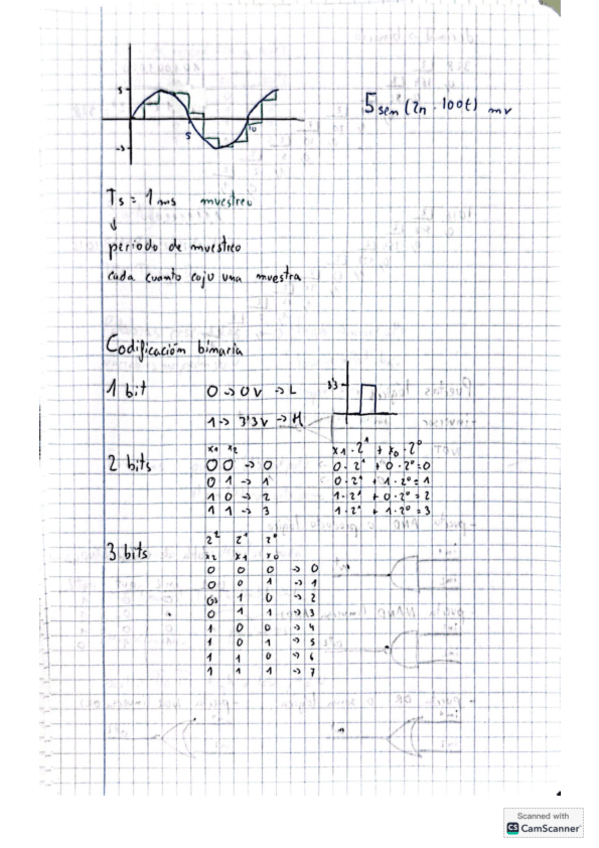 5
5
10
-5
5 sen (2π · 100t) mv
Ts = 1 ms muestreo
↓
periodo de muestreo
cada cuanto cojo una muestra
Codificación binaria
1 bit 0 → 0V → L
1 → 3'3V → H
3'3
2 bits
x1 x2
0 0 → 0
0 1 → 1
1 0 → 2
1 1 → 3
x1 · 2¹ + x0 · 2⁰
0 · 2¹ + 0 · 2⁰ = 0
0 · 2¹ + 1 · 2⁰ = 1
1 · 2¹ + 0 · 2⁰ = 2
1 · 2¹ + 1 · 2⁰ = 3
3 bits
2² 2¹ 2⁰
x2 x1 x0
0 0 0 → 0
0 0 1 → 1
0 1 0 → 2
0 1 1 → 3
1 0 0 → 4
1 0 1 → 5
1 1 0 → 6
1 1 1 → 7
Scanned with
CS CamScanner